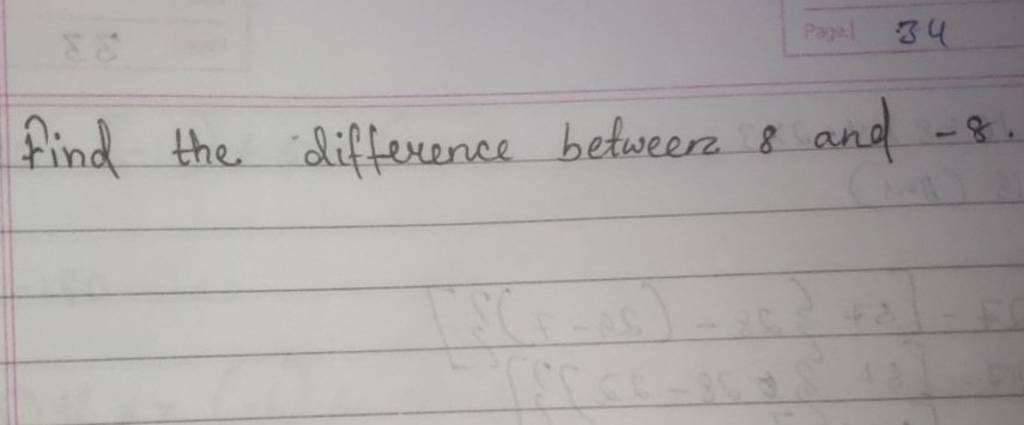 Page 34
Find the difference between 8 and -8.